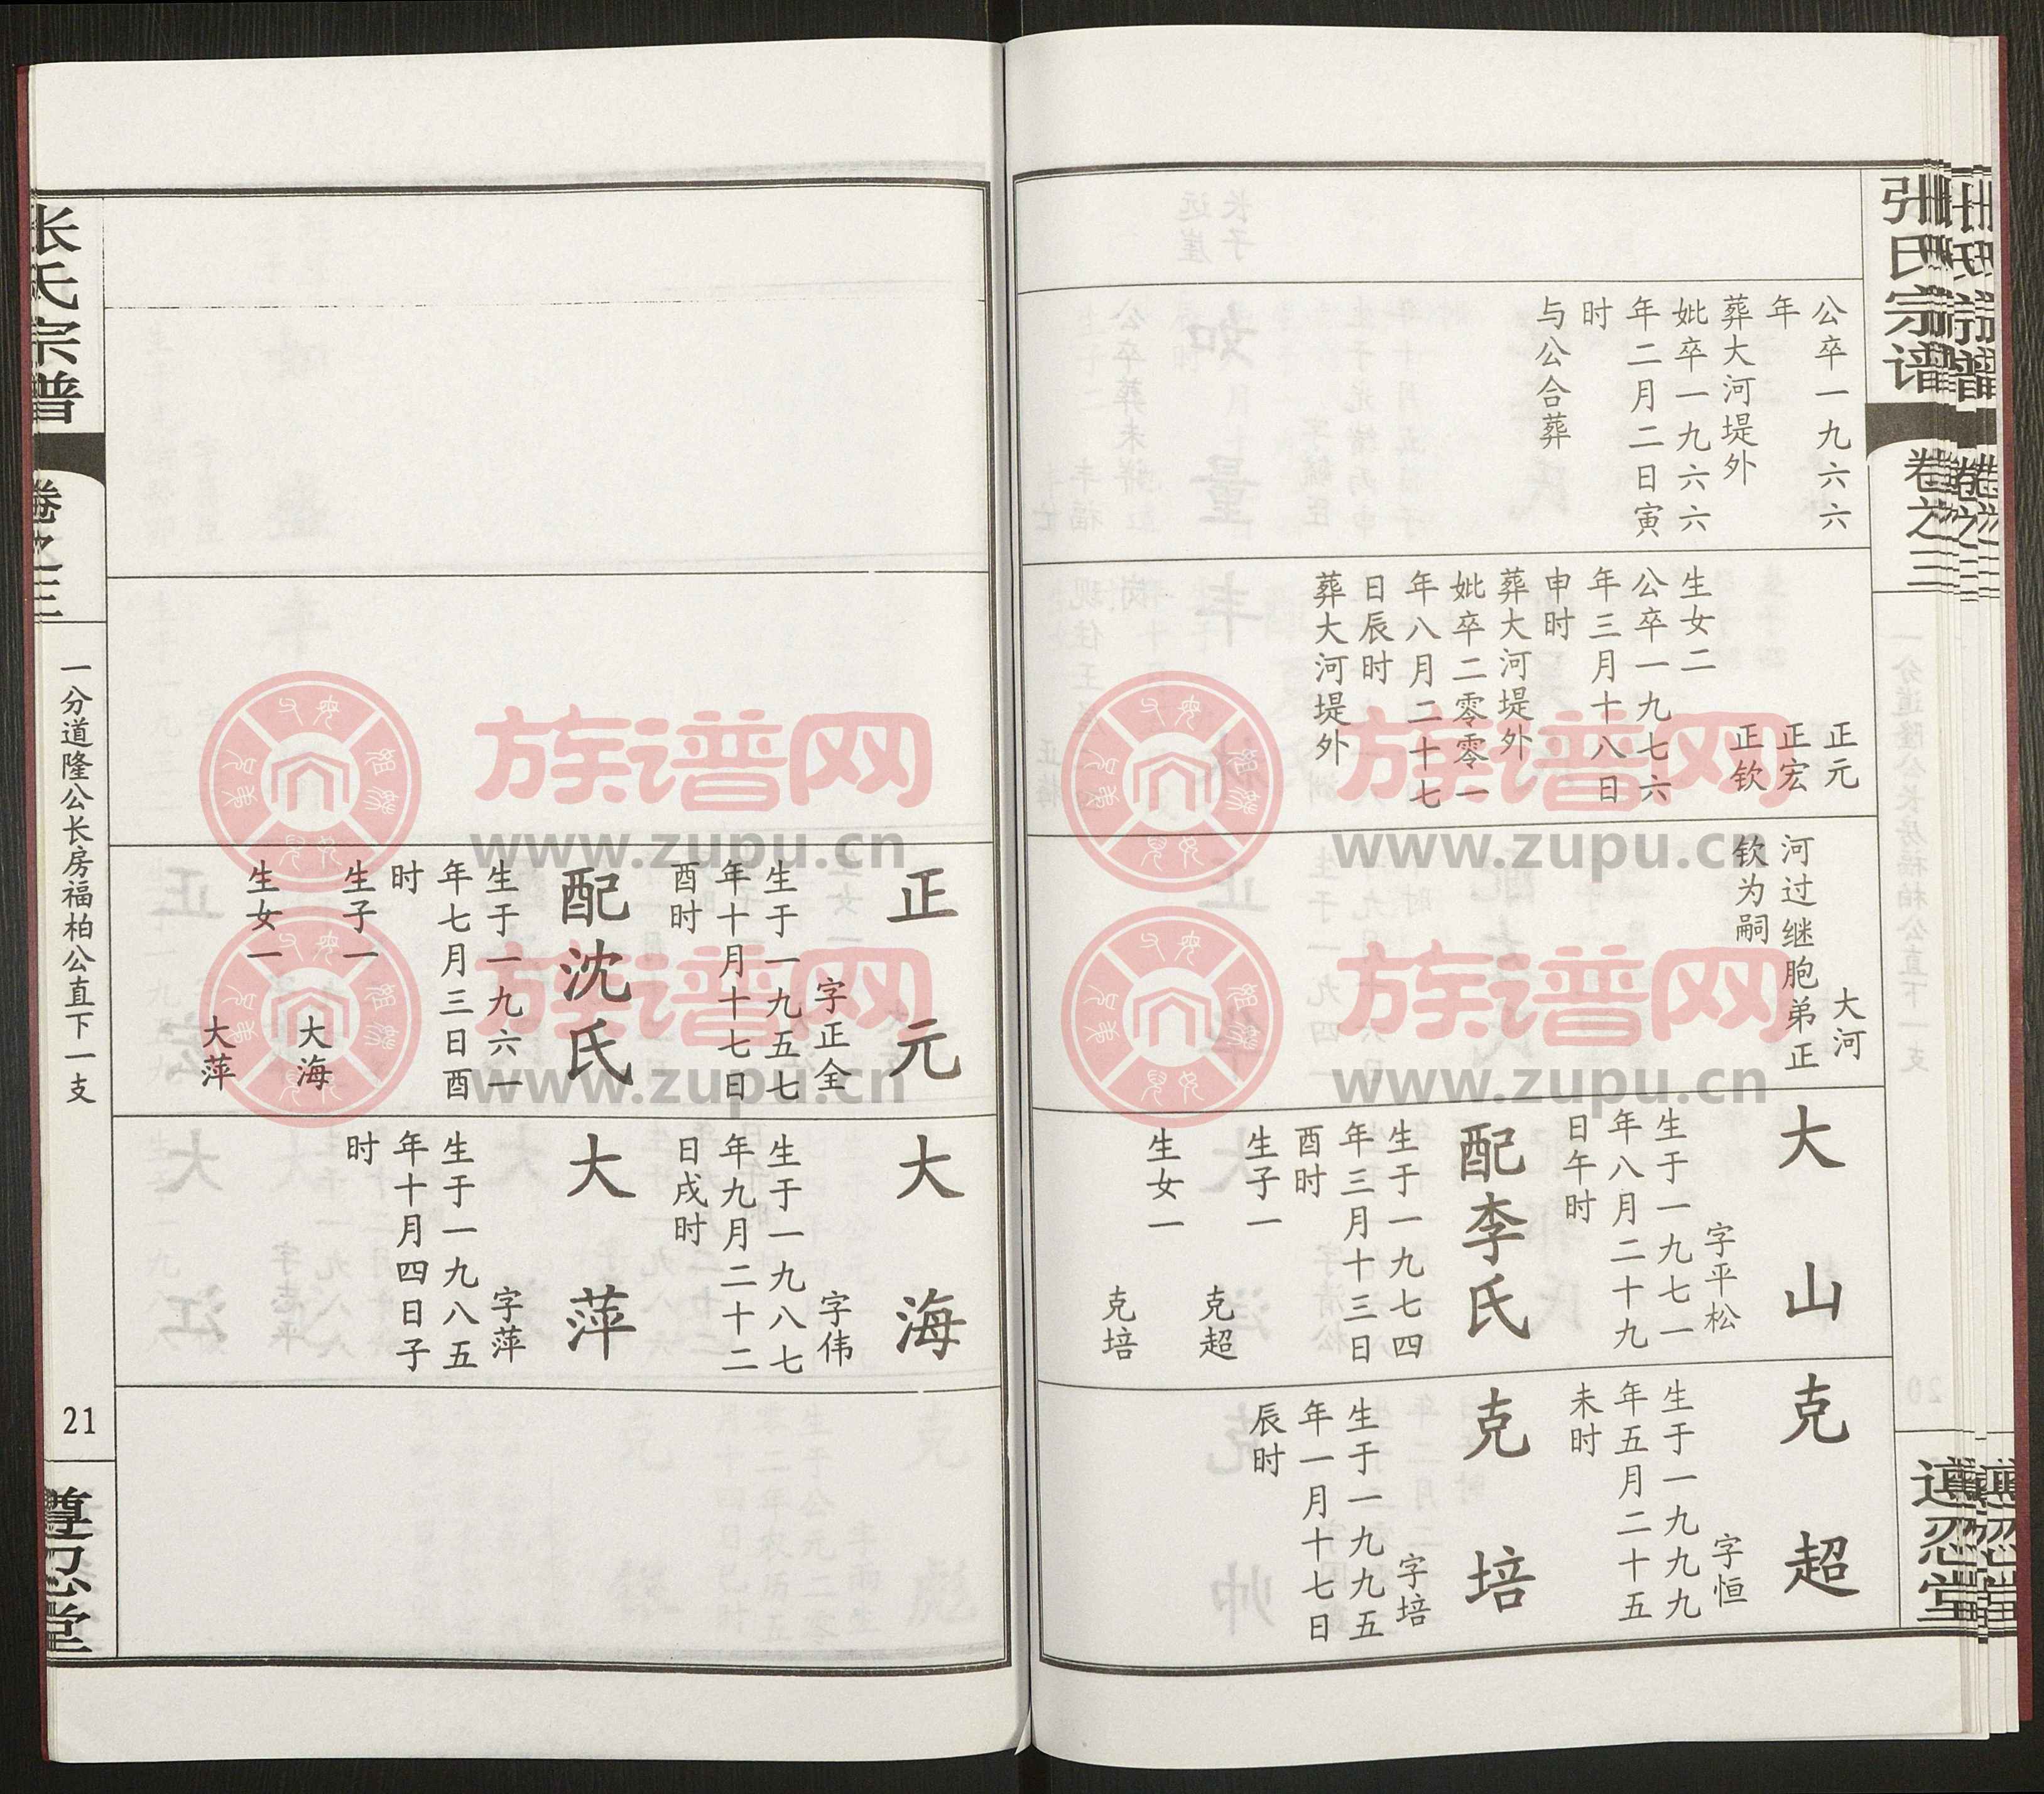 张氏宗谱
卷之三
遵忍堂
公卒一九六六
年
葬大河堤外
妣卒一九六六
年二月二日寅
时
与公合葬
正元
正宏
正钦
生女二
公卒一九七六
年三月十八日
申时
葬大河堤外
妣卒二零零一
年八月二十七
日辰时
葬大河堤外
大河
河过继胞弟正
钦为嗣
大山
字平松
生于一九七一
年八月二十九
日午时
配李氏
生于一九七四
年三月十三日
酉时
生子一
克超
生女一
克培
克超
字恒
生于一九九九
年五月二十五
未时
克培
字培
生于一九九五
年一月十七日
辰时
正元
字正全
生于一九五七
年十月十七日
酉时
配沈氏
生于一九六一
年七月三日酉
时
生子一
大海
生女一
大萍
大海
字伟
生于一九八七
年九月二十二
日戌时
大萍
字萍
生于一九八五
年十月四日子
时
张氏宗谱
卷之三
一分道隆公长房福柏公直下一支
21
遵忍堂
族谱网
www.zupu.cn
族谱网
www.zupu.cn
族谱网
www.zupu.cn
族谱网
www.zupu.cn